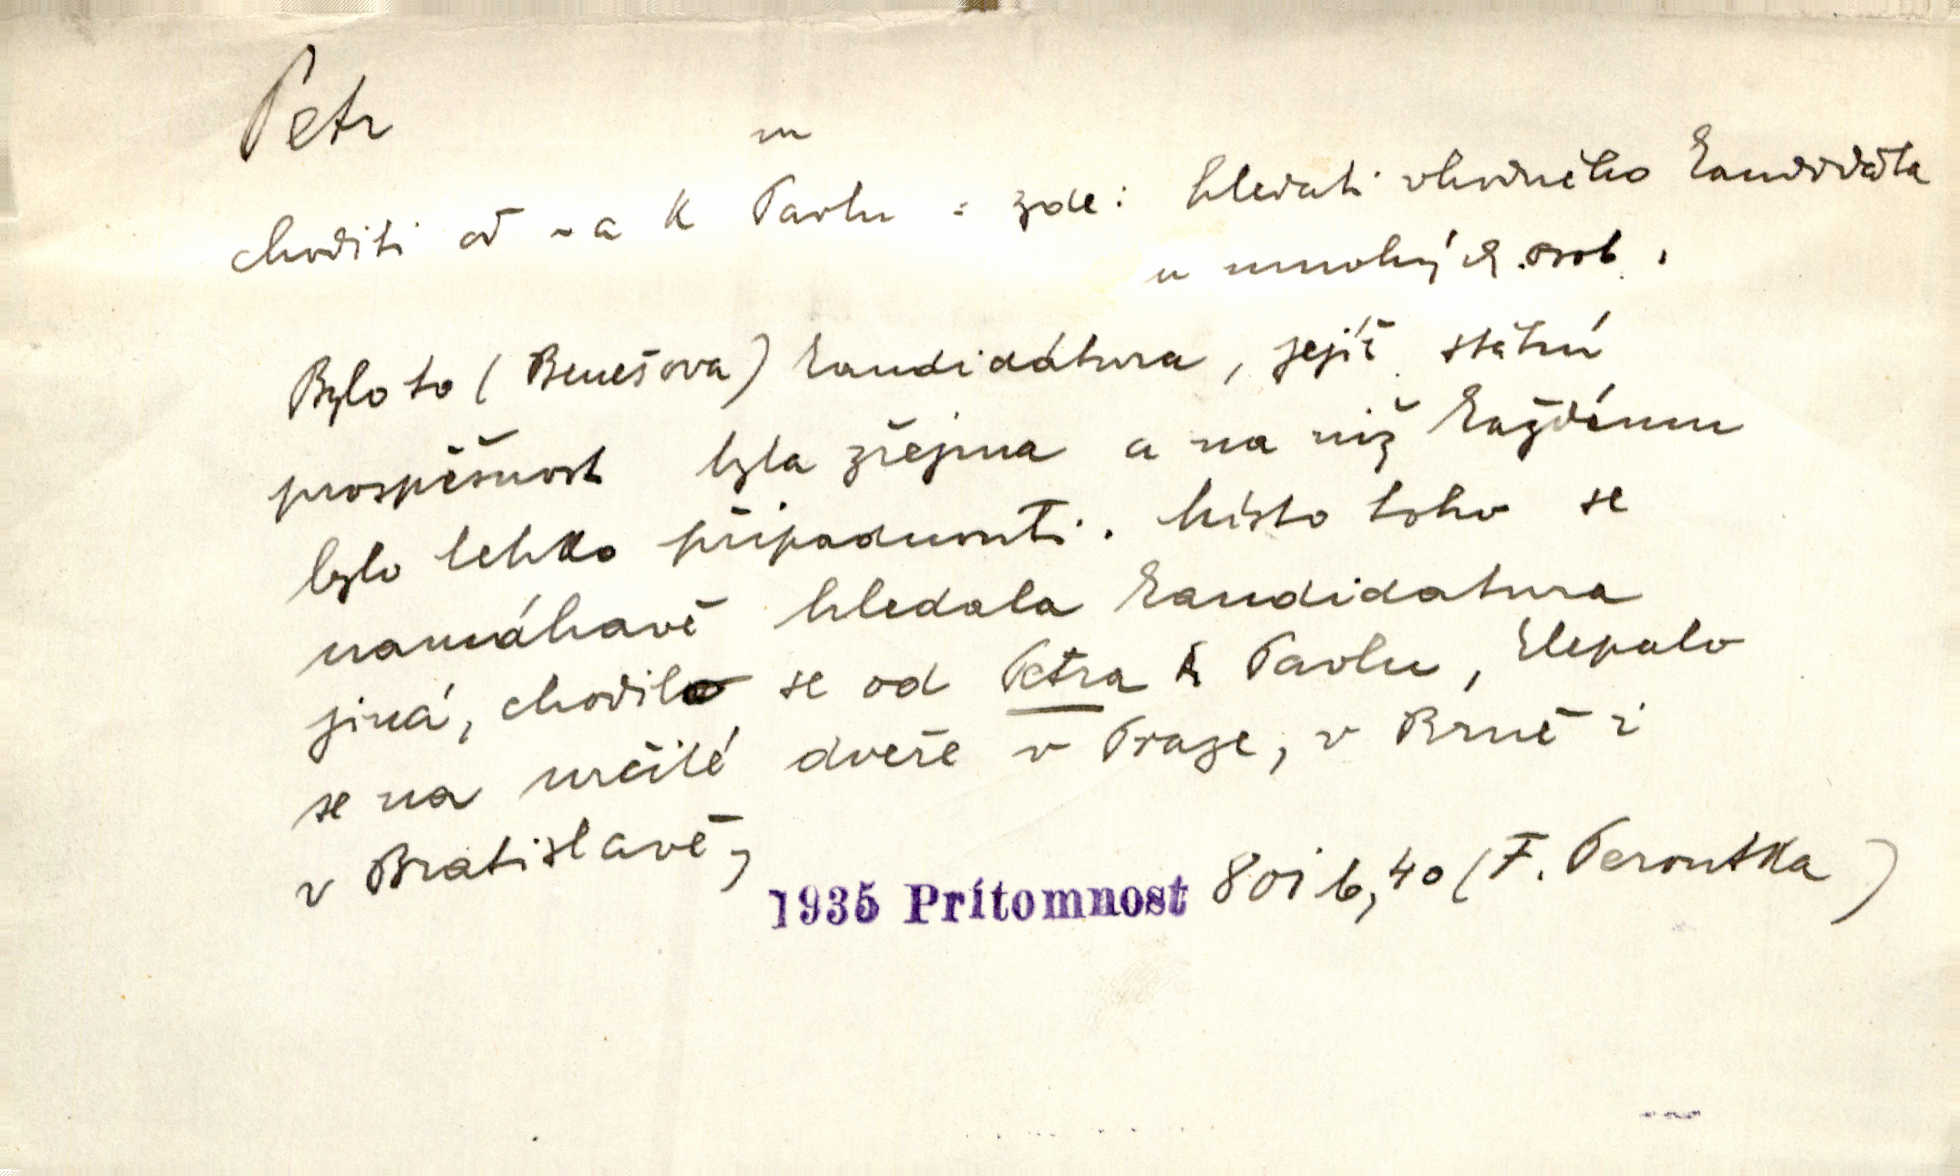 Petr
m
choditi od ~a k Pavlu = zde: hledati vhodného kandidáta
u mnohých osob.
Bylo to (Benešova) kandidátura, jejíž státní
prospěšnost byla zřejma a na niž každému
bylo lehko připadnouti. Místo toho se
namáhavě hledala kandidatura
jiná, chodilo se od Petra k Pavlu, klepalo
se na určité dveře v Praze, v Brně i
v Bratislavě,
1935 Prítomnost 801 b, 40 (F. Peroutka)